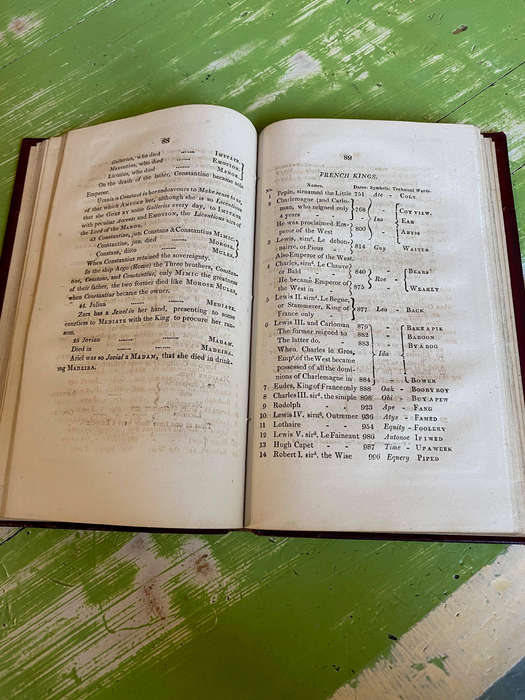 88
Galerius, who died ...... IMITATE.
Maxentius, who died ...... EMOTION.
Licinius, who died ...... MANOR.
On the death of the latter, Constantine became sole
Emperor.
Urania is Constant in her endeavours to
of that which
that she GOES by some Galleries every day, to IMITATE
with peculiar and EMOTION, the Licentious
the Lord of the MANOR.
43 Constantine, jun. Constans & Constantius MIMIC.
- Constantine, jun. died ...... MOROSE
Constans, ditto ...... MULES.
When Constantius retained the sovereignty.
In the ship Argo (House) the Three brothers, Constan-
tine, Constans, and Constantius, only MIMIC the greatness
of their father, the two former died like MOROSE MULES,
when Constantius became the owner.
44 Julian ...... MEDIATE.
Zara has a Jewel in her hand, presenting to some
courtiers to MEDIATE with the King to procure her ran-
som.
45 Jovian ...... MADAM.
Died in ...... MADEIRA.
Ariel was so Jovial a MADAM, that she died in drink-
ing MADEIRA.
89
FRENCH KINGS.
No. Names. Dates. Symbols. Technical Words.
1 Pepin, sirnamed the Little 751 Are - COLT
2 Charlemagne (and Carlo-
man, who reigned only 768 COY VIEW.
4 years - - Ino EAR
He was proclaimed Em-
peror of the West 800 ABYSS
3 Lewis, sirnd. Le debon-
nairie, or Pious - 814 Guy WAITER
Also Emperor of the West.
4 Charles, sirnd. Le Chauve,
or Bald - - 840 BEARS
He became Emperor of Roe
the West in - 875 WEAKLY
5 Lewis II. sirnd. Le Begue,
or Stammerer, King of 877 Leo - BACK.
France only - -
6 Lewis III. and Carloman 879 BAKE A PIE
The former reigned to 882 BABOON
The latter do. - 883 BY A DOG
When Charles le Gros, Ida
Emp. of the West became
possessed of all the domi-
nions of Charlemagne in 884 BOWER
7 Eudes, King of France only 888 Oak - BOOBY BOY
8 Charles III. sird. the simple 898 Obi - BUY A PEW
9 Rodolph - - 923 Ape - FANG
10 Lewis IV. sirnd. Outremer 936 Atys - FAMED
11 Lothaire - - 954 Equity - FOOLERY
12 Lewis V. sird. Le Faineant 986 Autonoe IF I WED
13 Hugh Capet - - 987 Time - UP A WEEK
14 Robert I. sird. the Wise 996 Equery PIPED